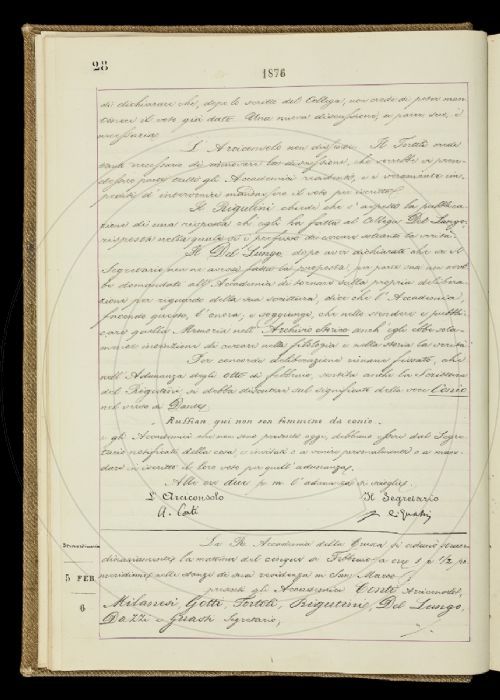 28
1876
di dichiarare che, dopo lo scritto del Collega, non crede di poter man-
tenere il voto già dato. Una nuova discussione, a parer suo, è
necessaria.
L'Arciconsolo non dissente. Il Tortoli crede
tanto necessario di rinnovare la discussione, che vorrebbe a pren-
dessero parte tutti gli Accademici residenti, e i veramente im-
pediti d'intervenire mandassero il voto per iscritto.
Il Rigutini chiede che s'aspetti la pubblica-
zione di una risposta ch'egli ha fatta al Collega Del Lungo,
risposta nella quale si è prefisso di cercare soltanto la verità.
Il Del Lungo, dopo aver dichiarato che se il
Segretario non ne avesse fatta la proposta, per parte sua non avreb-
be domandato all'Accademia di tornare sulla propria delibera-
zione per riguardo della sua scrittura, dice che l'Accademia,
facendo questo, l'onora; e soggiunge, che nello scrivere e pubbli-
care quella Memoria nell'Archivio Storico anch'egli ebbe sola-
mente intenzione di cercare nella filologia e nella storia la verità.
Per concorde deliberazione rimane fissato, che
nell'Adunanza degli otto di febbraio, sentita anche la Scrittura
del Rigutini, si debba discutere sul significato della voce Conio
nel verso di Dante,
Ruffian qui non son femmine da conio.
e gli Accademici che non sono presenti oggi, debbano esser dal Segre-
tario notificati della cosa, e invitati o a venire personalmente o a man-
dare in iscritto il loro voto per quell'adunanza.
Alle ore dieci p. m. l'adunanza si scioglie.
L'Arciconsolo
Il Segretario
A. Conti
C. Guasti
Straordinaria
La R. Accademia della Crusca si aduna straor-
dinariamente la mattina del cinque di Febbraio a ore 1 e 1/2 po-
meridiane nelle stanze di sua residenza in San Marco;
5 FEB.
presenti gli Accademici Conti Arciconsolo,
6
Milanesi, Gotti, Tortoli, Rigutini, Del Lungo,
Dazzi e Guasti Segretario,